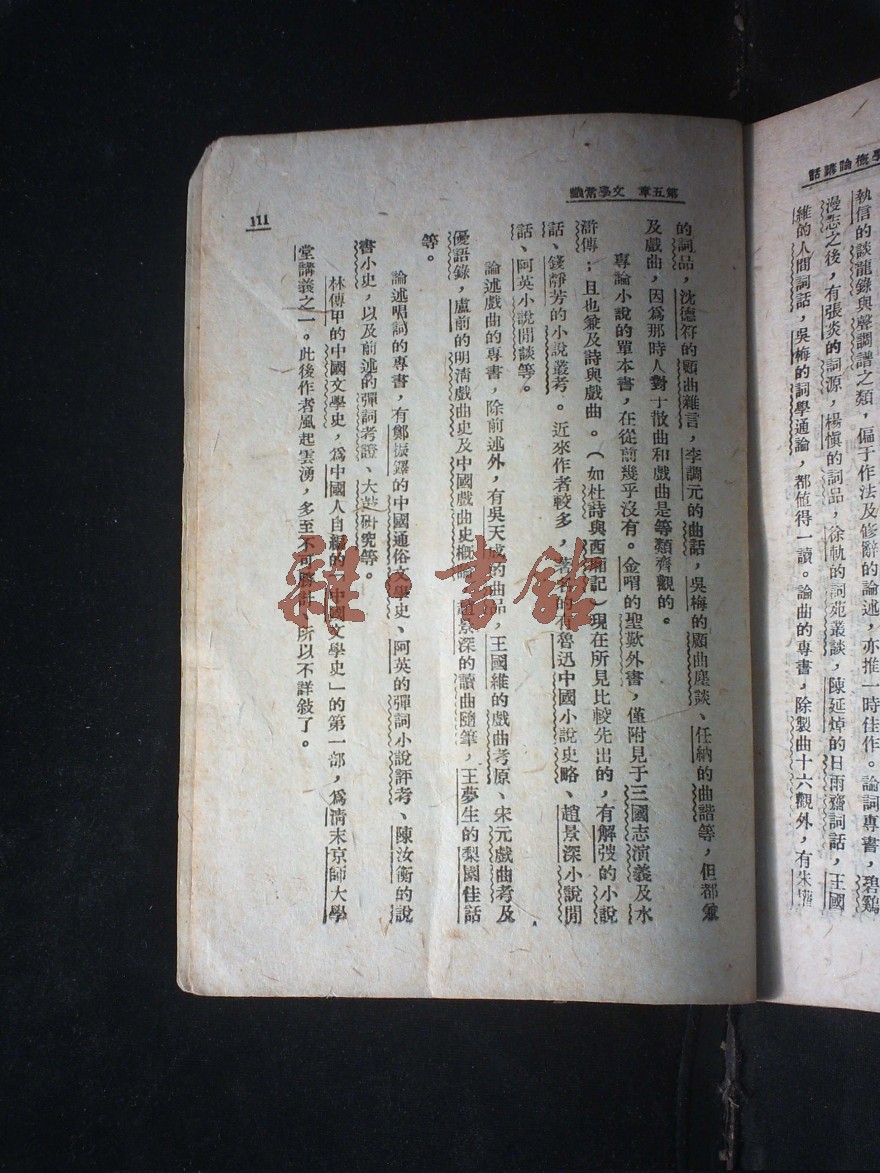 學概論講話
執信的談龍錄與聲調譜之類，偏于作法及修辭的論述，亦推一時佳作。論詞專書，碧鷄
漫志之後，有張炎的詞源，楊愼的詞品，徐軌的詞苑叢談，陳延焯的日雨齋詞話，王國
維的人間詞話，吳梅的詞學通論，都値得一讀。論曲的專書，除製曲十六觀外，有朱權
第五章 文學常職
的詞品，沈德符的顧曲雜言，李調元的曲話，吳梅的顧曲麈談、任納的曲諧等，但都兼
及戲曲，因爲那時人對于散曲和戲曲是等類齊觀的。
專論小說的單本書，在從前幾乎沒有。金喟的聖歎外書，僅附見于三國志演義及水
滸傳；且也兼及詩與戲曲。（如杜詩與西廂記）現在所見比較先出的，有解弢的小說
話、錢靜芳的小說叢考。近來作者較多，著名的有魯迅中國小說史略、趙景深小說閒
話、阿英小說閒談等。
論述戲曲的專書，除前述外，有吳天成的曲品，王國維的戲曲考原、宋元戲曲考及
優語錄，盧前的明淸戲曲史及中國戲曲史概論，趙景深的讀曲隨筆，王夢生的梨園佳話
等。
論述唱詞的專書，有鄭振鐸的中國通俗文學史、阿英的彈詞小說評考、陳汝衡的說
書小史，以及前述的彈詞考證、大鼓研究等。
林傳甲的中國文學史，爲中國人自編的「中國文學史」的第一部，爲淸末京師大學
堂講義之一。此後作者風起雲湧，多至不可勝計、所以不詳敍了。
111
雜·書館